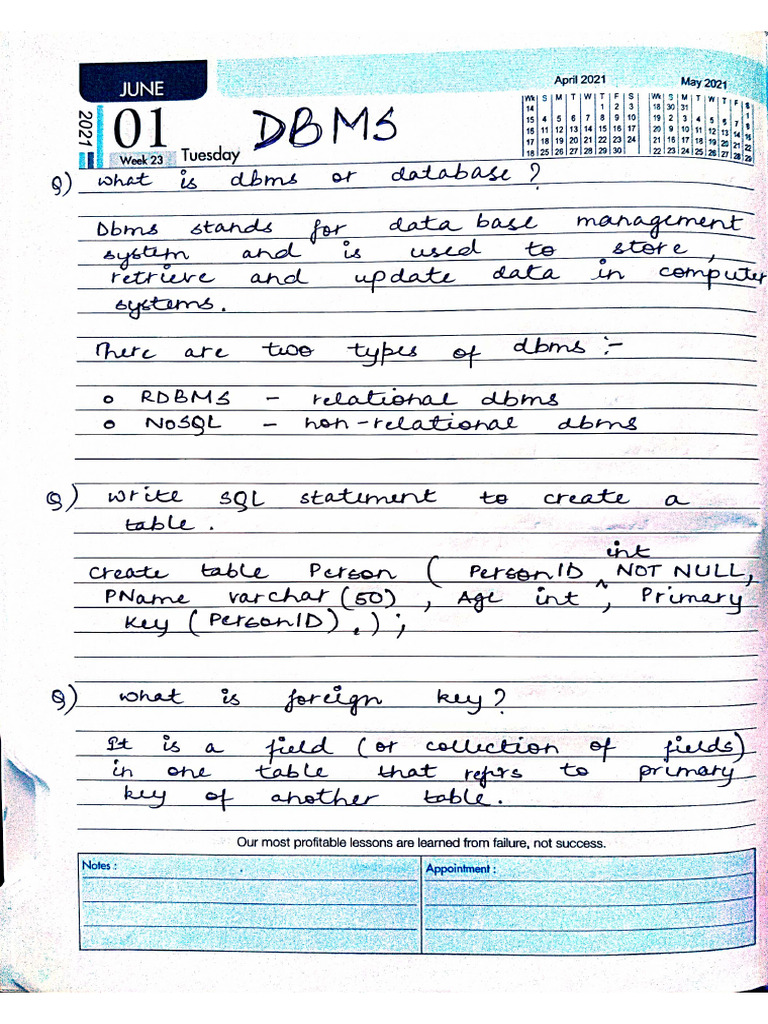 JUNE
2021
01
Week 23
Tuesday
DBMS
April 2021
Wk S M T W T F S
14 1 2 3
15 4 5 6 7 8 9 10
16 11 12 13 14 15 16 17
17 18 19 20 21 22 23 24
18 25 26 27 28 29 30
May 2021
Wk S M T W T F S
18 30 31 1
19 2 3 4 5 6 7 8
20 9 10 11 12 13 14 15
21 16 17 18 19 20 21 22
22 23 24 25 26 27 28 29
Q) what is dbms or database?
Dbms stands for data base management
system and is used to store,
retrieve and update data in computer
systems.
There are two types of dbms :-
o RDBMS - relational dbms
o NoSQL - non-relational dbms
Q) write SQL statement to create a
table.
int
create table Person ( PersonID ^ NOT NULL,
PName varchar(50) , Age int , Primary
key (PersonID) , ) ;
Q) what is foreign key?
It is a field (or collection of fields)
in one table that refers to primary
key of another table.
Our most profitable lessons are learned from failure, not success.
Notes :
Appointment :